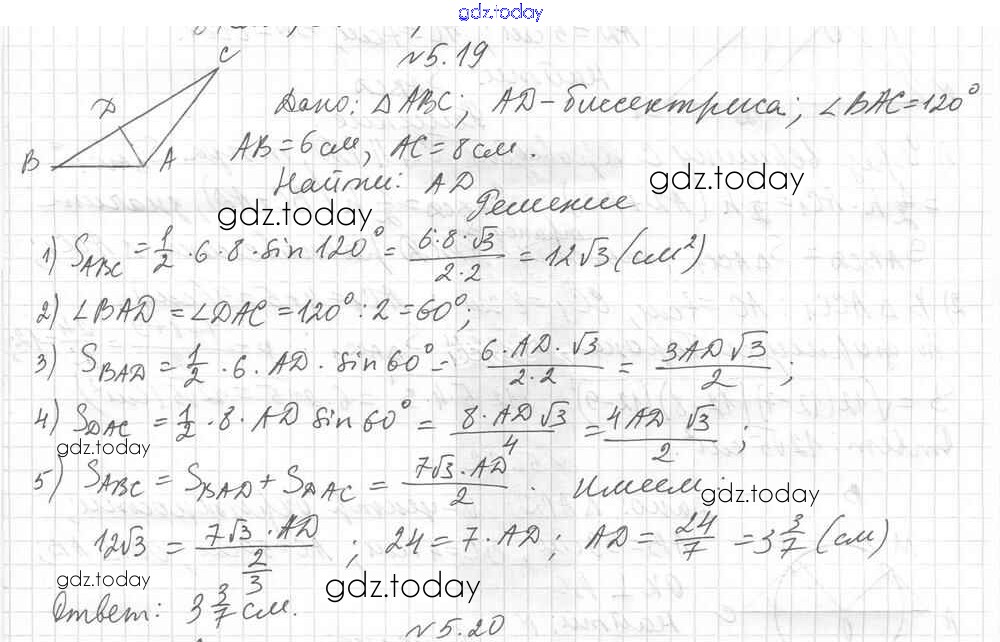 gdz.today
N5.19
C
D
B
A
Дано: △ABC; AD-биссектриса; ∠BAC=120°
AB=6см, AC=8см.
Найти: AD
gdz.today
gdz.today
Решение
1) S_ABC = 1/2 · 6 · 8 · sin 120° = 6·8·√3/2·2 = 12√3 (см²)
2) ∠BAD = ∠DAC = 120° : 2 = 60°;
3) S_BAD = 1/2 · 6 · AD · sin 60° = 6·AD·√3/2·2 = 3AD√3/2;
4) S_DAC = 1/2 · 8 · AD sin 60° = 8·AD√3/4 = 4AD √3/2;
gdz.today
5) S_ABC = S_BAD + S_DAC = 7√3·AD/2. Имеем:
gdz.today
12√3 = 7√3·AD/2; 24 = 7·AD; AD = 24/7 = 3 3/7 (см)
gdz.today
gdz.today
Ответ: 3 3/7 см.
N5.20